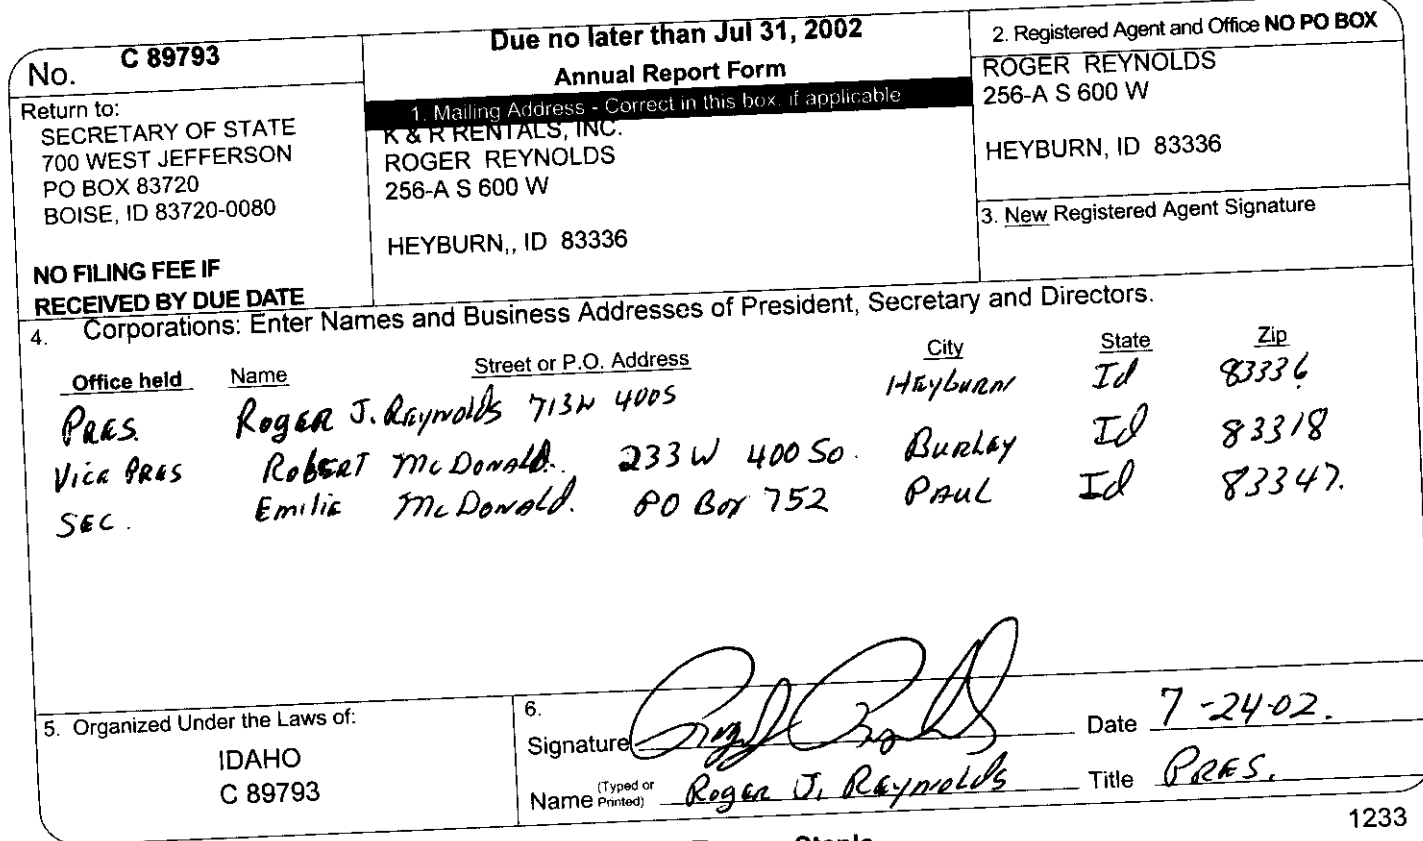 No. C 89793
Return to:
SECRETARY OF STATE
700 WEST JEFFERSON
PO BOX 83720
BOISE, ID 83720-0080
NO FILING FEE IF
RECEIVED BY DUE DATE
Due no later than Jul 31, 2002
Annual Report Form
1. Mailing Address - Correct in this box, if applicable
K & R RENTALS, INC.
ROGER REYNOLDS
256-A S 600 W
HEYBURN,, ID 83336
2. Registered Agent and Office NO PO BOX
ROGER REYNOLDS
256-A S 600 W
HEYBURN, ID 83336
3. New Registered Agent Signature
4. Corporations: Enter Names and Business Addresses of President, Secretary and Directors.
Office held Name Street or P.O. Address City State Zip
PRES. Roger J. Reynolds 713W 400S Heyburn Id 83336
Vice Pres Robert McDonald. 233 W 400 So. Burley Id 83318
SEC. Emilie McDonald. PO Box 752 PAUL Id 83347.
5. Organized Under the Laws of:
IDAHO
C 89793
6.
Signature Date 7-24-02.
Name (Typed or Printed) Roger J. Reynolds Title PRES.
1233